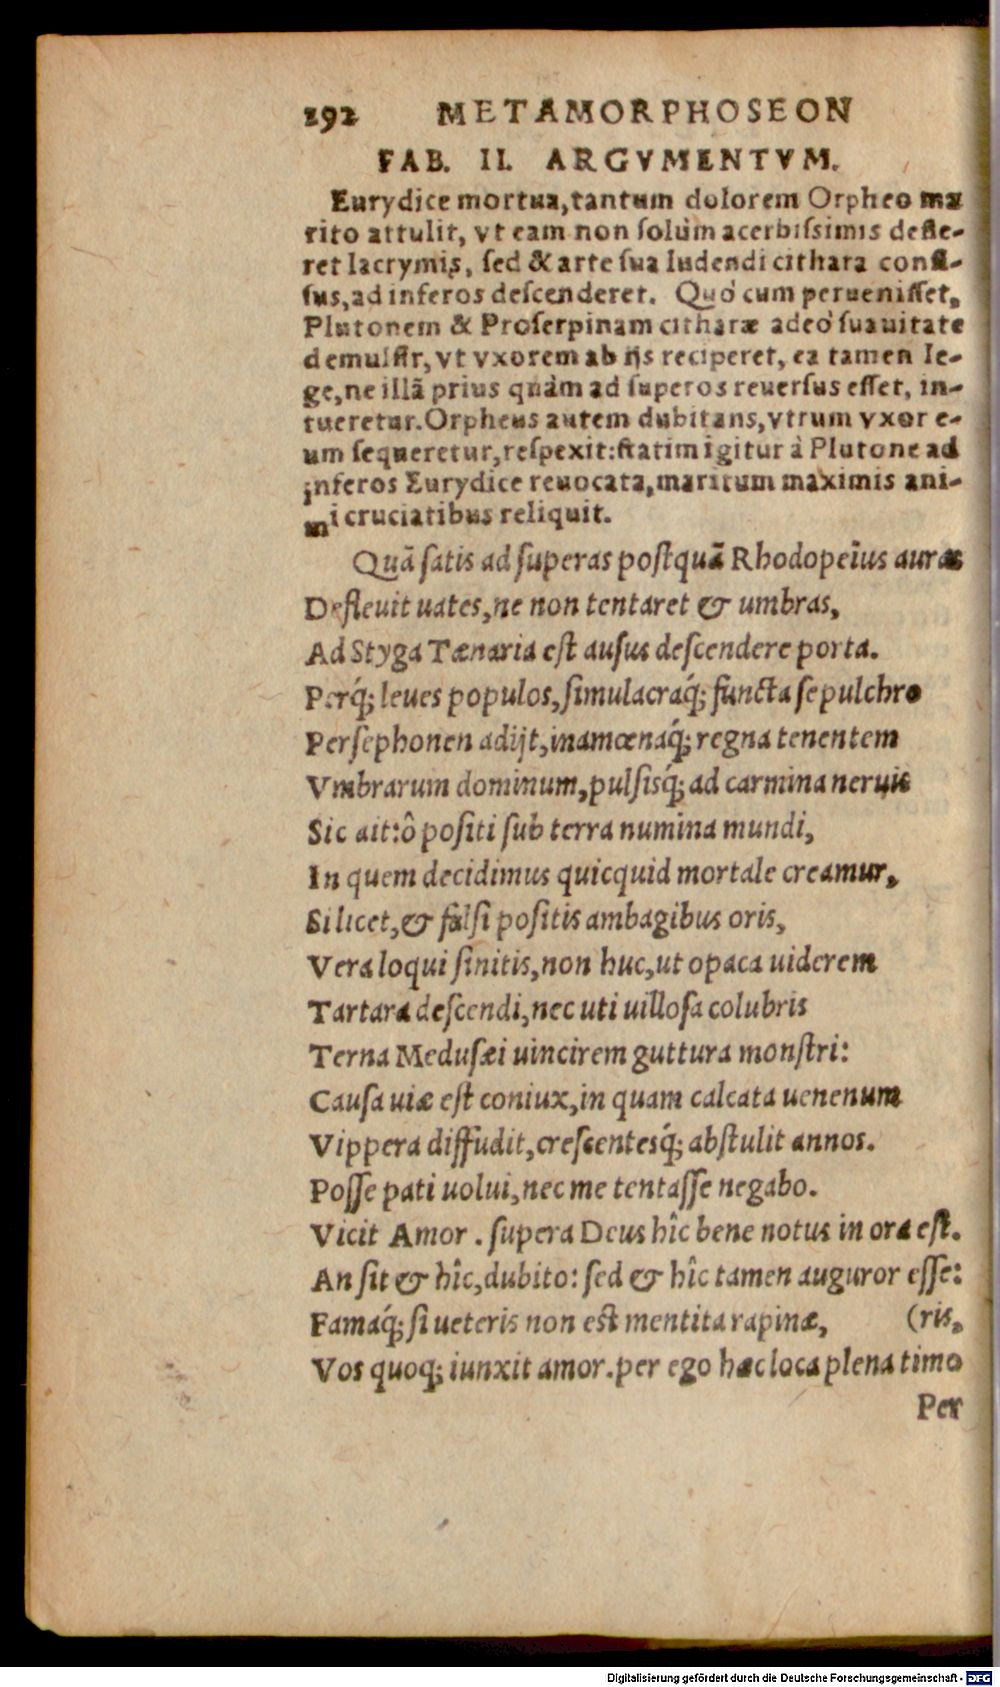 292 METAMORPHOSEON
FAB. II. ARGVMENTVM.
Eurydice mortua, tantum dolorem Orpheo ma
rito attulit, vt eam non solùm acerbissimis defle-
ret lacrymis, sed & arte sua ludendi cithara confi-
sus, ad inferos descenderet. Quò cum peruenisset,
Plutonem & Proserpinam citharæ adeò suauitate
demulsit, vt vxorem ab ijs reciperet, ea tamen le-
ge, ne illã prius quàm ad superos reuersus esset, in-
tueretur. Orpheus autem dubitans, vtrum vxor e-
um sequeretur, respexit: statim igitur à Plutone ad
inferos Eurydice reuocata, maritum maximis ani-
mi cruciatibus reliquit.
Quã satis ad superas postquã Rhodopeïus auras
Defleuit uates, ne non tentaret & umbras,
Ad Styga Tænaria est ausus descendere porta.
Perq́; leues populos, simulacraq́; functa sepulchro
Persephonen adijt, inamœnaq́; regna tenentem
Vmbrarum dominum, pulsisq́; ad carmina neruis
Sic ait: ô positi sub terra numina mundi,
In quem decidimus quicquid mortale creamur,
Si licet, & falsi positis ambagibus oris,
Vera loqui sinitis, non huc, ut opaca uiderem
Tartara descendi, nec uti uillosa colubris
Terna Medusæi uincirem guttura monstri:
Causa uiæ est coniux, in quam calcata uenenum
Vippera diffudit, crescentesq́; abstulit annos.
Posse pati uolui, nec me tentasse negabo.
Vicit Amor. supera Deus hîc bene notus in ora est.
An sit & hîc, dubito: sed & hîc tamen auguror esse:
Famaq́; si ueteris non est mentita rapinæ, (ris,
Vos quoq; iunxit amor. per ego hæc loca plena timo
Per
Digitalisierung gefördert durch die Deutsche Forschungsgemeinschaft - DFG